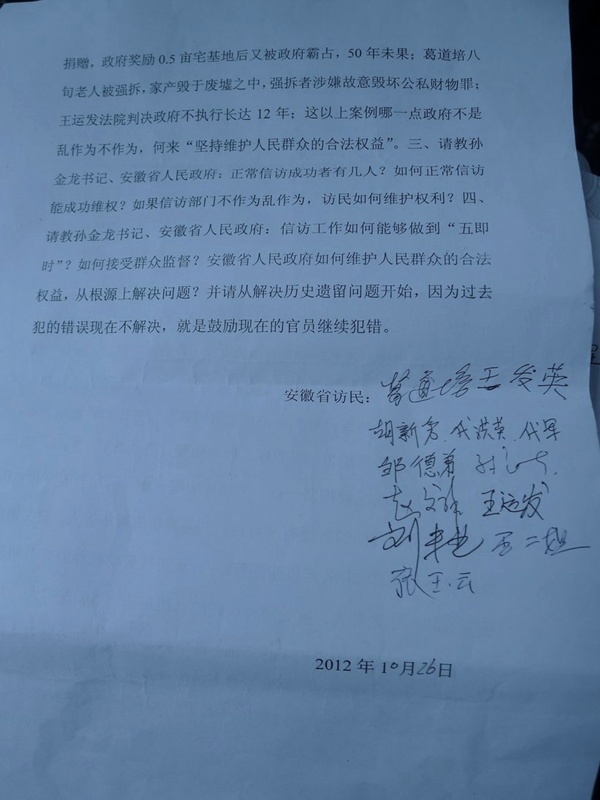 捐赠，政府奖励0.5亩宅基地后又被政府霸占，50年未果；葛道培八
旬老人被强拆，家产毁于废墟之中，强拆者涉嫌故意毁坏公私财物罪；
王运发法院判决政府不执行长达12年；这以上案例哪一点政府不是
乱作为不作为，何来“坚持维护人民群众的合法权益”。三、请教孙
金龙书记、安徽省人民政府：正常信访成功者有几人？如何正常信访
能成功维权？如果信访部门不作为乱作为，访民如何维护权利？四、
请教孙金龙书记、安徽省人民政府：信访工作如何能够做到“五即
时”？如何接受群众监督？安徽省人民政府如何维护人民群众的合法
权益，从根源上解决问题？并请从解决历史遗留问题开始，因为过去
犯的错误现在不解决，就是鼓励现在的官员继续犯错。
安徽省访民：葛道培 王发英
胡新 代洪英、代军
邹德
赵文 王运发
刘 二
张玉云
2012年10月26日